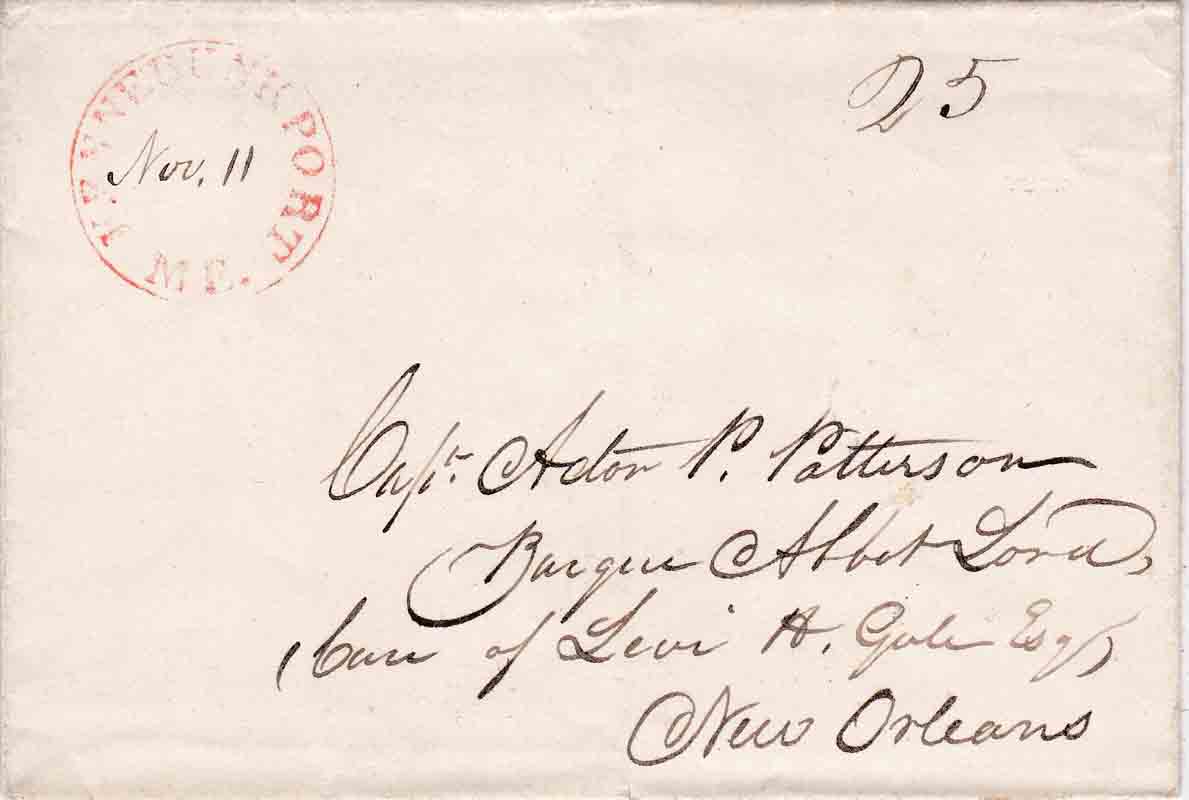 KENNEBUNK-PORT
Nov. 11
ME.
25
Capt. Actor P. Patterson
Barque Abbot Lord,
(Care of Levi H. Gale Esq)
New Orleans